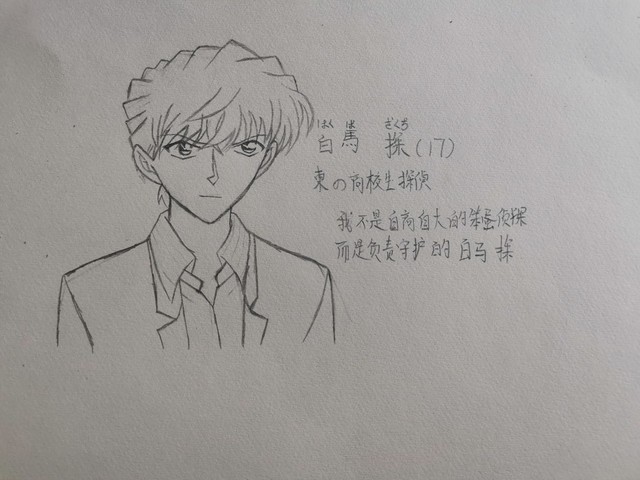 はく ば
白馬 探(17)
東の高校生探侦
我不是自高自大的笨蛋侦探
而是负责守护的白马 探